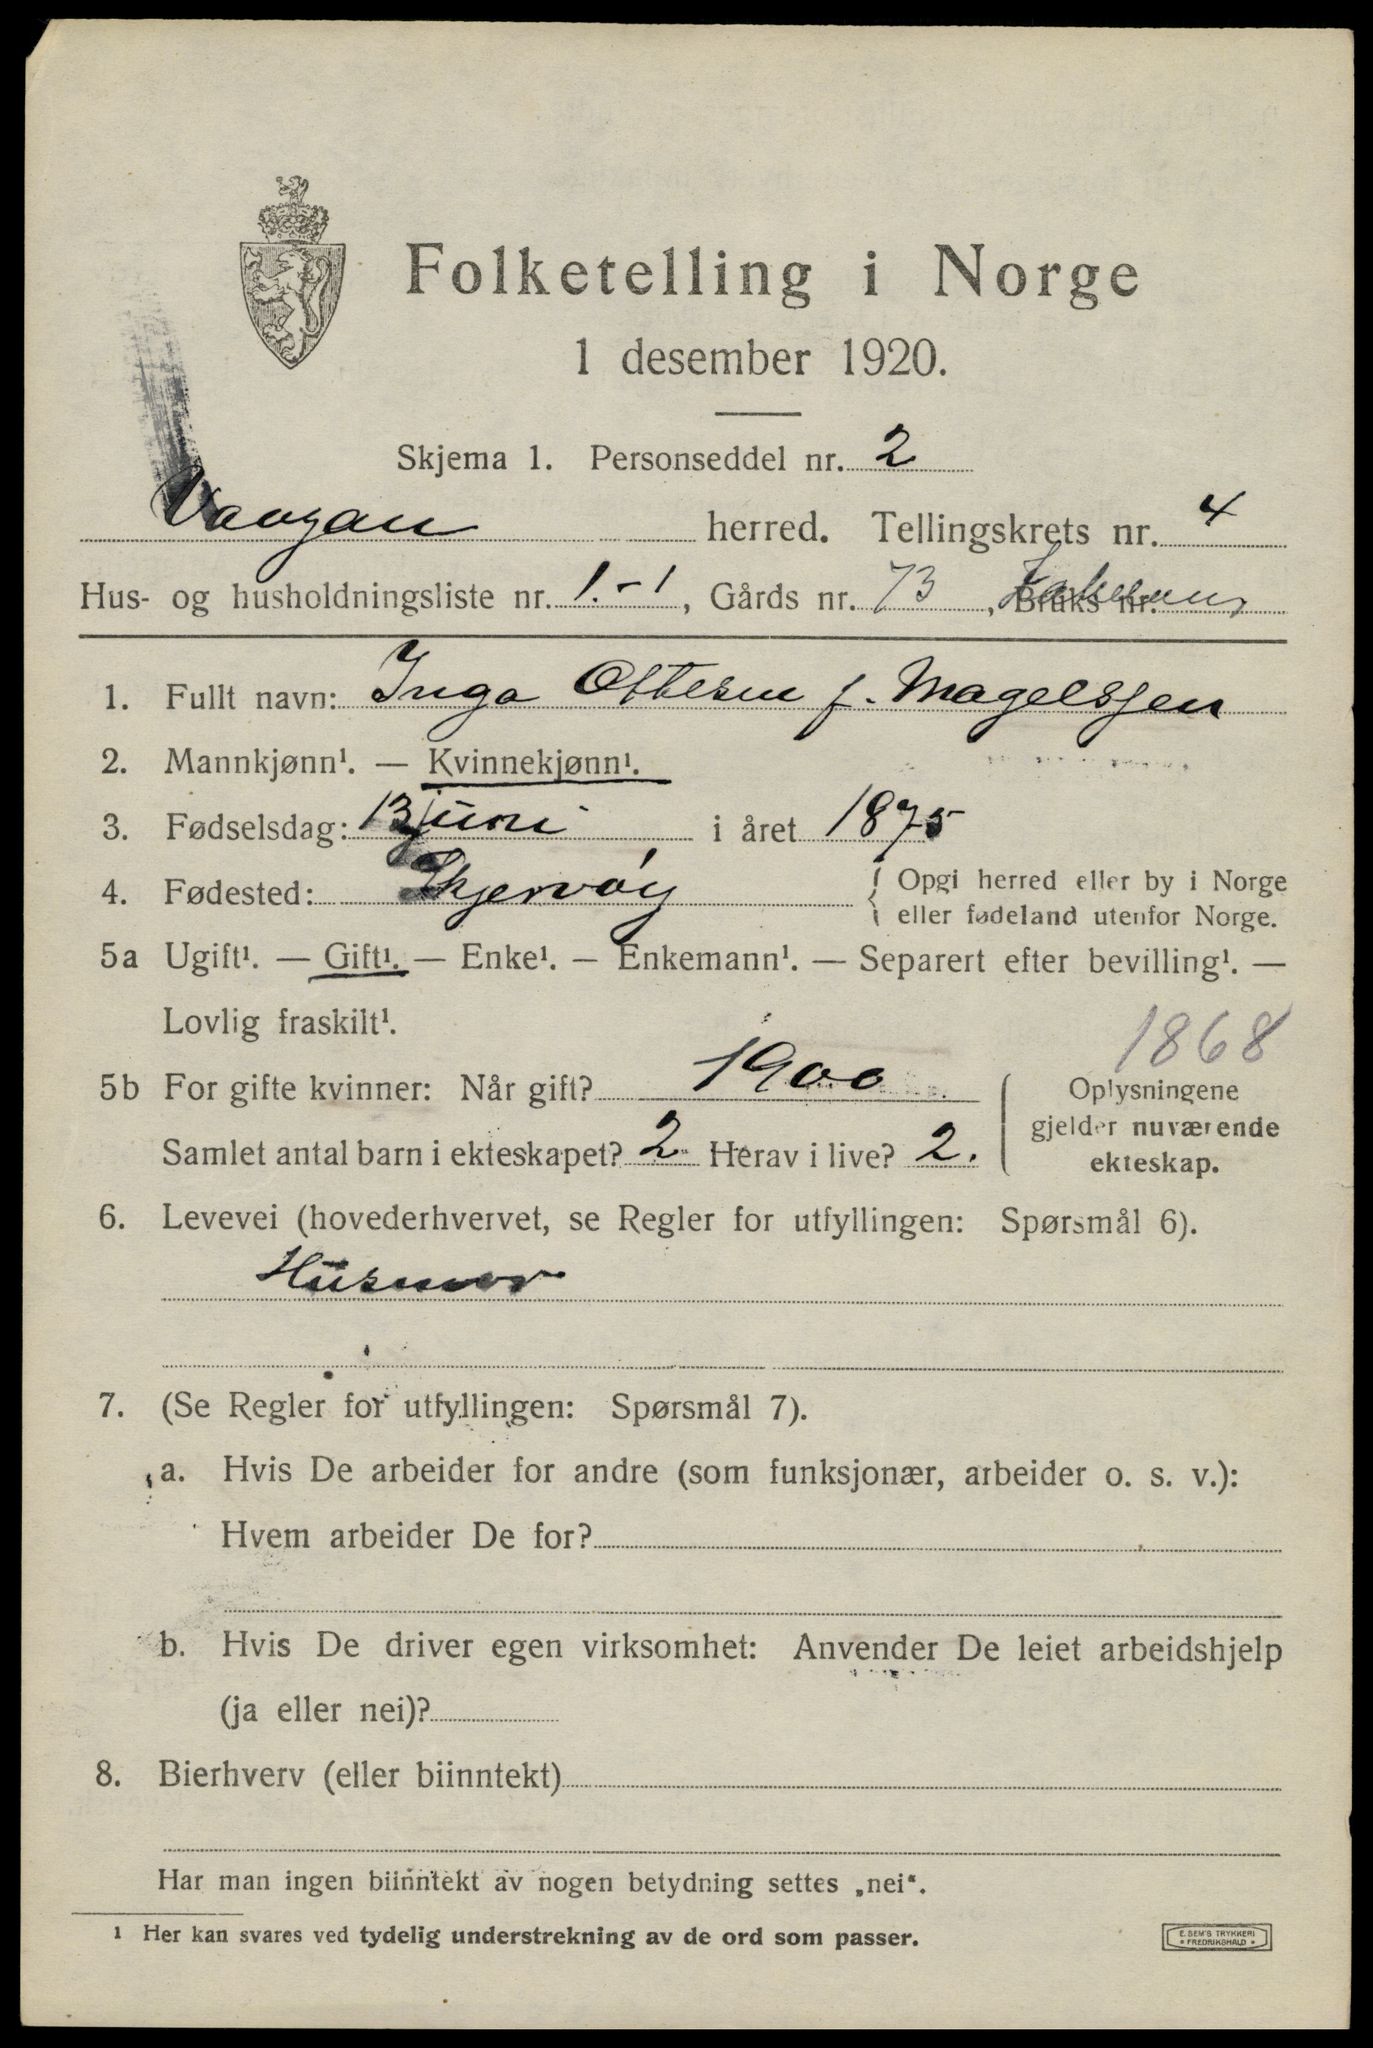 Folketelling i Norge
1 desember 1920.
Skjema 1. Personseddel nr. 2
Vaagan herred. Tellingskrets nr. 4
Hus- og husholdningsliste nr. 1.-1, Gårds nr. 73, Bruks nr.
1. Fullt navn: Inga Ottesen f. Magelssen
2. Mannkjønn¹. — Kvinnekjønn¹.
3. Fødselsdag: 13 juni i året 1875
4. Fødested: Skjervøy { Opgi herred eller by i Norge
eller fødeland utenfor Norge.
5a Ugift¹. — Gift¹. — Enke¹. — Enkemann¹. — Separert efter bevilling¹. —
Lovlig fraskilt¹.
1868
5b For gifte kvinner: Når gift? 1900
Samlet antal barn i ekteskapet? 2 Herav i live? 2.
Oplysningene
gjelder nuværende
ekteskap.
6. Levevei (hovederhvervet, se Regler for utfyllingen: Spørsmål 6).
Husmor
7. (Se Regler for utfyllingen: Spørsmål 7).
a. Hvis De arbeider for andre (som funksjonær, arbeider o. s. v.):
Hvem arbeider De for?
b. Hvis De driver egen virksomhet: Anvender De leiet arbeidshjelp
(ja eller nei)?
8. Bierhverv (eller biinntekt)
Har man ingen biinntekt av nogen betydning settes „nei".
¹ Her kan svares ved tydelig understrekning av de ord som passer.
E. SEM'S TRYKKERI
FREDRIKSHALD